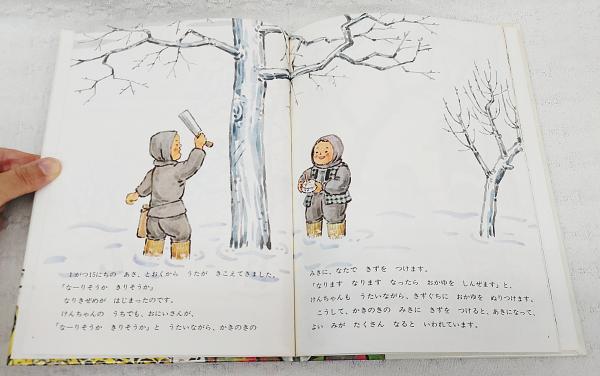 1がつ15にちの　あさ、とおくから　うたが　きこえてきました。
「なーりそうか　きりそうか」
なりきぜめが　はじまったのです。
けんちゃんの　うちでも、おにいさんが、
「なーりそうか　きりそうか」と　うたいながら、かきのきの
みきに、なたで　きずを　つけます。
「なります　なります　なったら　おかゆを　しんぜます」と、
けんちゃんも　うたいながら、きずぐちに　おかゆを　ぬりつけます。
こうして、かきのきの　みきに　きずを　つけると、あきになって、
よい　みが　たくさん　なると　いわれています。